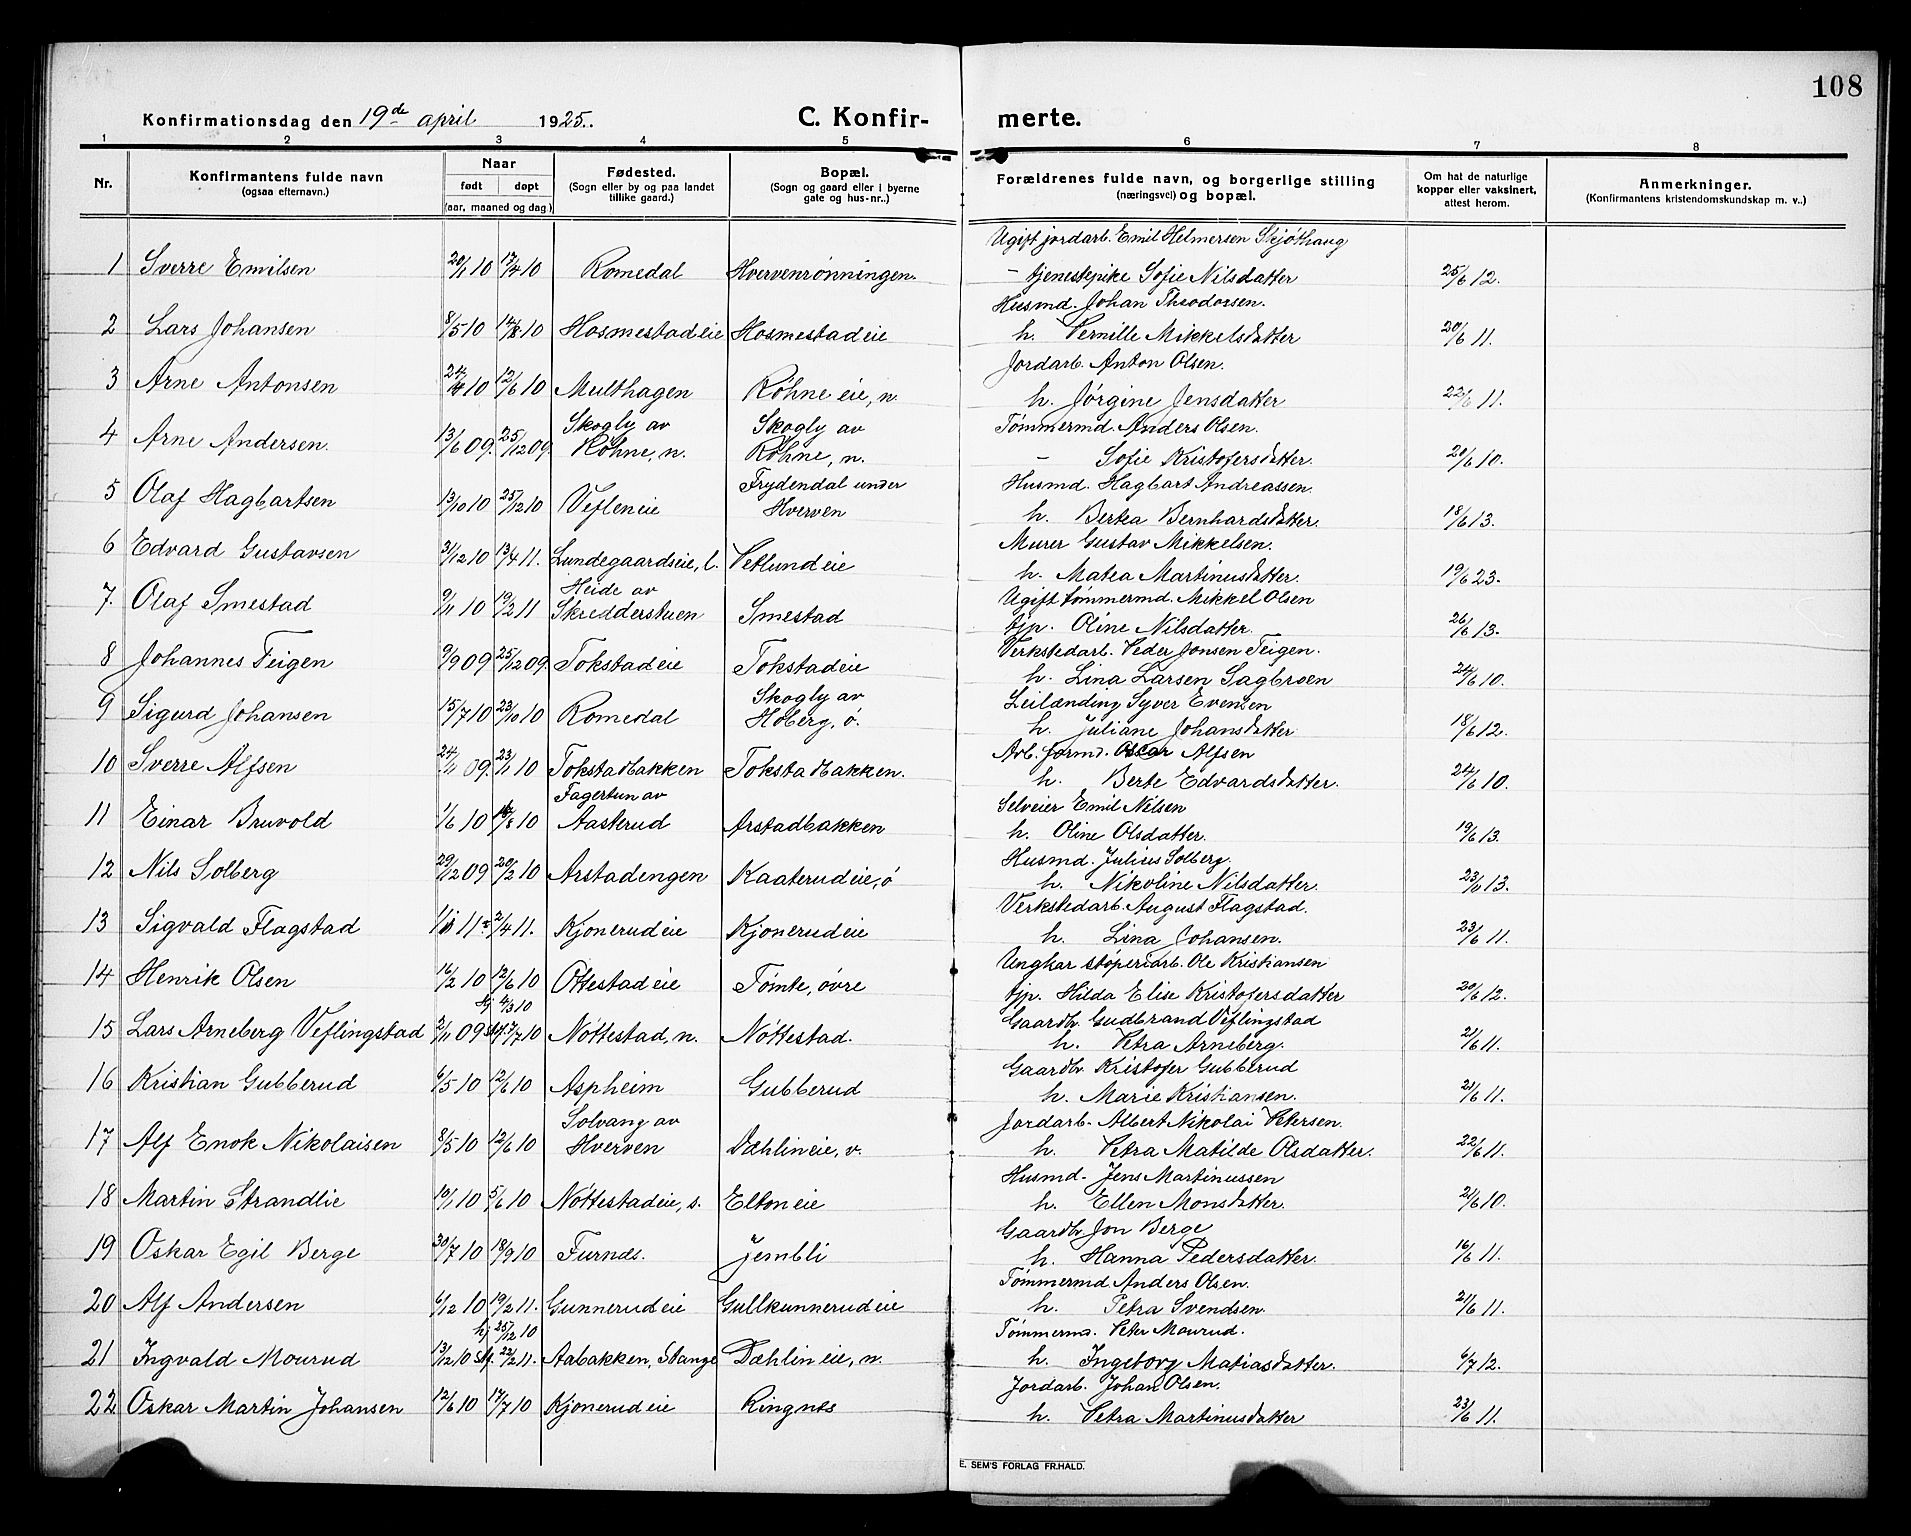 108
Konfirmationsdag den 19de april 1925. C. Konfir- merte.
1 2 3 4 5 6 7 8
Nr. Konfirmantens fulde navn Naar Fødested. Bopæl. Forældrenes fulde navn, og borgerlige stilling Om hat de naturlige Anmerkninger.
(ogsaa efternavn.) født døpt (Sogn eller by og paa landet (Sogn og gaard eller i byerne (næringsvei) og bopæl. kopper eller vaksinert, (Konfirmantens kristendomskundskap m. v.)
(aar, maaned og dag) tillike gaard.) gate og hus-nr.) attest herom.
Ugift jordarb. Emil Helmersen Skjøthaug
1 Sverre Emilsen 20/1 10 17/4 10 Romedal Hvervenrønningen. – tjenestepike Sofie Nilsdatter 25/6 12.
Husmd. Johan Theodorsen.
2 Lars Johansen 8/5 10 14/8 10 Hosmestadeie Hosmestadeie h. Pernille Mikkelsdatter 20/6 11.
Jordarb. Anton Olsen.
3 Arne Antonsen 24/4 10 12/6 10 Multhagen Røhne eie, n. h. Jørgine Jensdatter 22/6 11.
Skogly av Skogly av Tømmermd. Anders Olsen.
4 Arne Andersen. 13/6 09. 25/12 09. Røhne, n. Røhne, n. – Sofie Kristofersdatter. 20/6 10.
Frydendal under Husmd. Hagbart Andreassen.
5 Olaf Hagbartsen 13/10 10 25/12 10 Vefleneie Hverven h. Bertea Bernhardsdatter. 18/6 13.
Murer Gustav Mikkelsen.
6 Edvard Gustavsen 31/12 10 13/4 11. Lundegaardseie, l. Vetlundeie h. Matea Martinusdatter. 19/6 23.
Heide av Ugift tømmermd. Mikkel Olsen
7. Olaf Smestad 9/11 10 19/2 11 Skredderstuen Smestad tjp. Oline Nilsdatter. 26/6 13.
Verkstedarb. Peder Jonsen Teigen.
8 Johannes Teigen 9/9 09 25/12 09 Tokstadeie Tokstadeie h. Lina Larsen Sagbroen 24/6 10.
Skogly av Leilænding Syver Evensen
9 Sigurd Johansen 15/7 10 23/10 10 Romedal Hoberg, ø. h. Juliane Johansdatter 18/6 12.
Arb. formd. Oscar Alfsen
10 Sverre Alfsen 24/11 09. 23/1 10 Tokstadbakken Tokstadbakken. h. Berte Edvardsdatter. 24/6 10.
Fagertun av Selveier Emil Nilsen
11 Einar Bruvold 1/6 10 /8 10 Aasterud Arstadbakken h. Oline Olsdatter. 19/6 13.
Husmd. Julius Solberg.
12 Nils Solberg 29/12 09 20/2 10 Arstadengen Kaaterudeie, ø h. Nikoline Nilsdatter. 23/ 13.
Verkstedarb. August Flagstad.
13 Sigvald Flagstad 11. 2/4 11. Kjonerudeie Kjonerudeie h. Lina Johansen. 23/6 11.
Ungkar støperiarb. Ole Kristiansen
14 Henrik Olsen 16/2 10 12/6 10 Ottestadeie Tømte, øvre tjp. Hilda Elise Kristofersdatter 20/6 12.
hj. 4/3 10 Gaardbr. Gudbrand Veflingstad
15 Lars Arneberg Veflingstad 2/11 09 st. 17/7 10 Nøttestad, n. Nøttestad. h. Petra Arneberg. 21/6 11.
Gaardbr. Kristofer Gubberud
16 Kristian Gubberud 6/5 10 12/6 10 Aspheim Gubberud h. Marie Kristiansen. 21/6 11.
Solvang av Jordarb. Albert Nikolai Petersen.
17 Alf Enok Nikolaisen 8/5 10 12/6 10 Hverven Dæhlineie, v. h. Petra Matilde Olsdatter. 22/6 11.
Husmd. Jens Martinussen
18 Martin Strandlie 19/1 10 5/6 10 Nøttestadeie, s. Eltoneie h. Ellen Monsdatter. 21/6 10.
Gaardbr. Jon Berge
19 Oskar Egil Berge 30/7 10 18/9 10 Furnes. Jembli h. Hanna Pedersdatter. 16/6 11.
Tømmermd. Anders Olsen.
20 Alf Andersen 6/12 10 19/2 11. Gunnerudeie Gullkunnerudeie h. Petra Svendsen. 21/6 11.
hj. 25/12 10 Tømmermd. Peter Mourud.
21 Ingvald Mourud 13/12 10 st. 22/2 11. Aabakken, Stange Dæhlineie, n. h. Ingeborg Matiasdatter. 6/7 12.
Jordarb. Johan Olsen.
22 Oskar Martin Johansen 12/6 10 17/7 10 Kjonerudeie Ringnes h. Petra Martinusdatter 23/6 11.
E. SEM'S FORLAG FR.HALD.